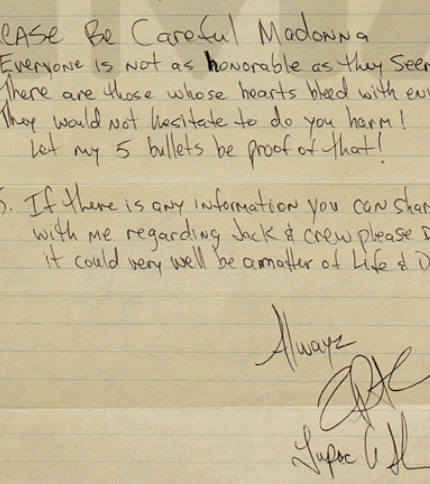 EASE Be Careful Madonna
Everyone is not as honorable as they seem
There are those whose hearts bleed with env
They would not hesitate to do you harm!
Let my 5 bullets be proof of that!
S. If there is any information you can shar
with me regarding Jack & crew please D
it could very well be a matter of Life & D
Always
Tupac A Sh